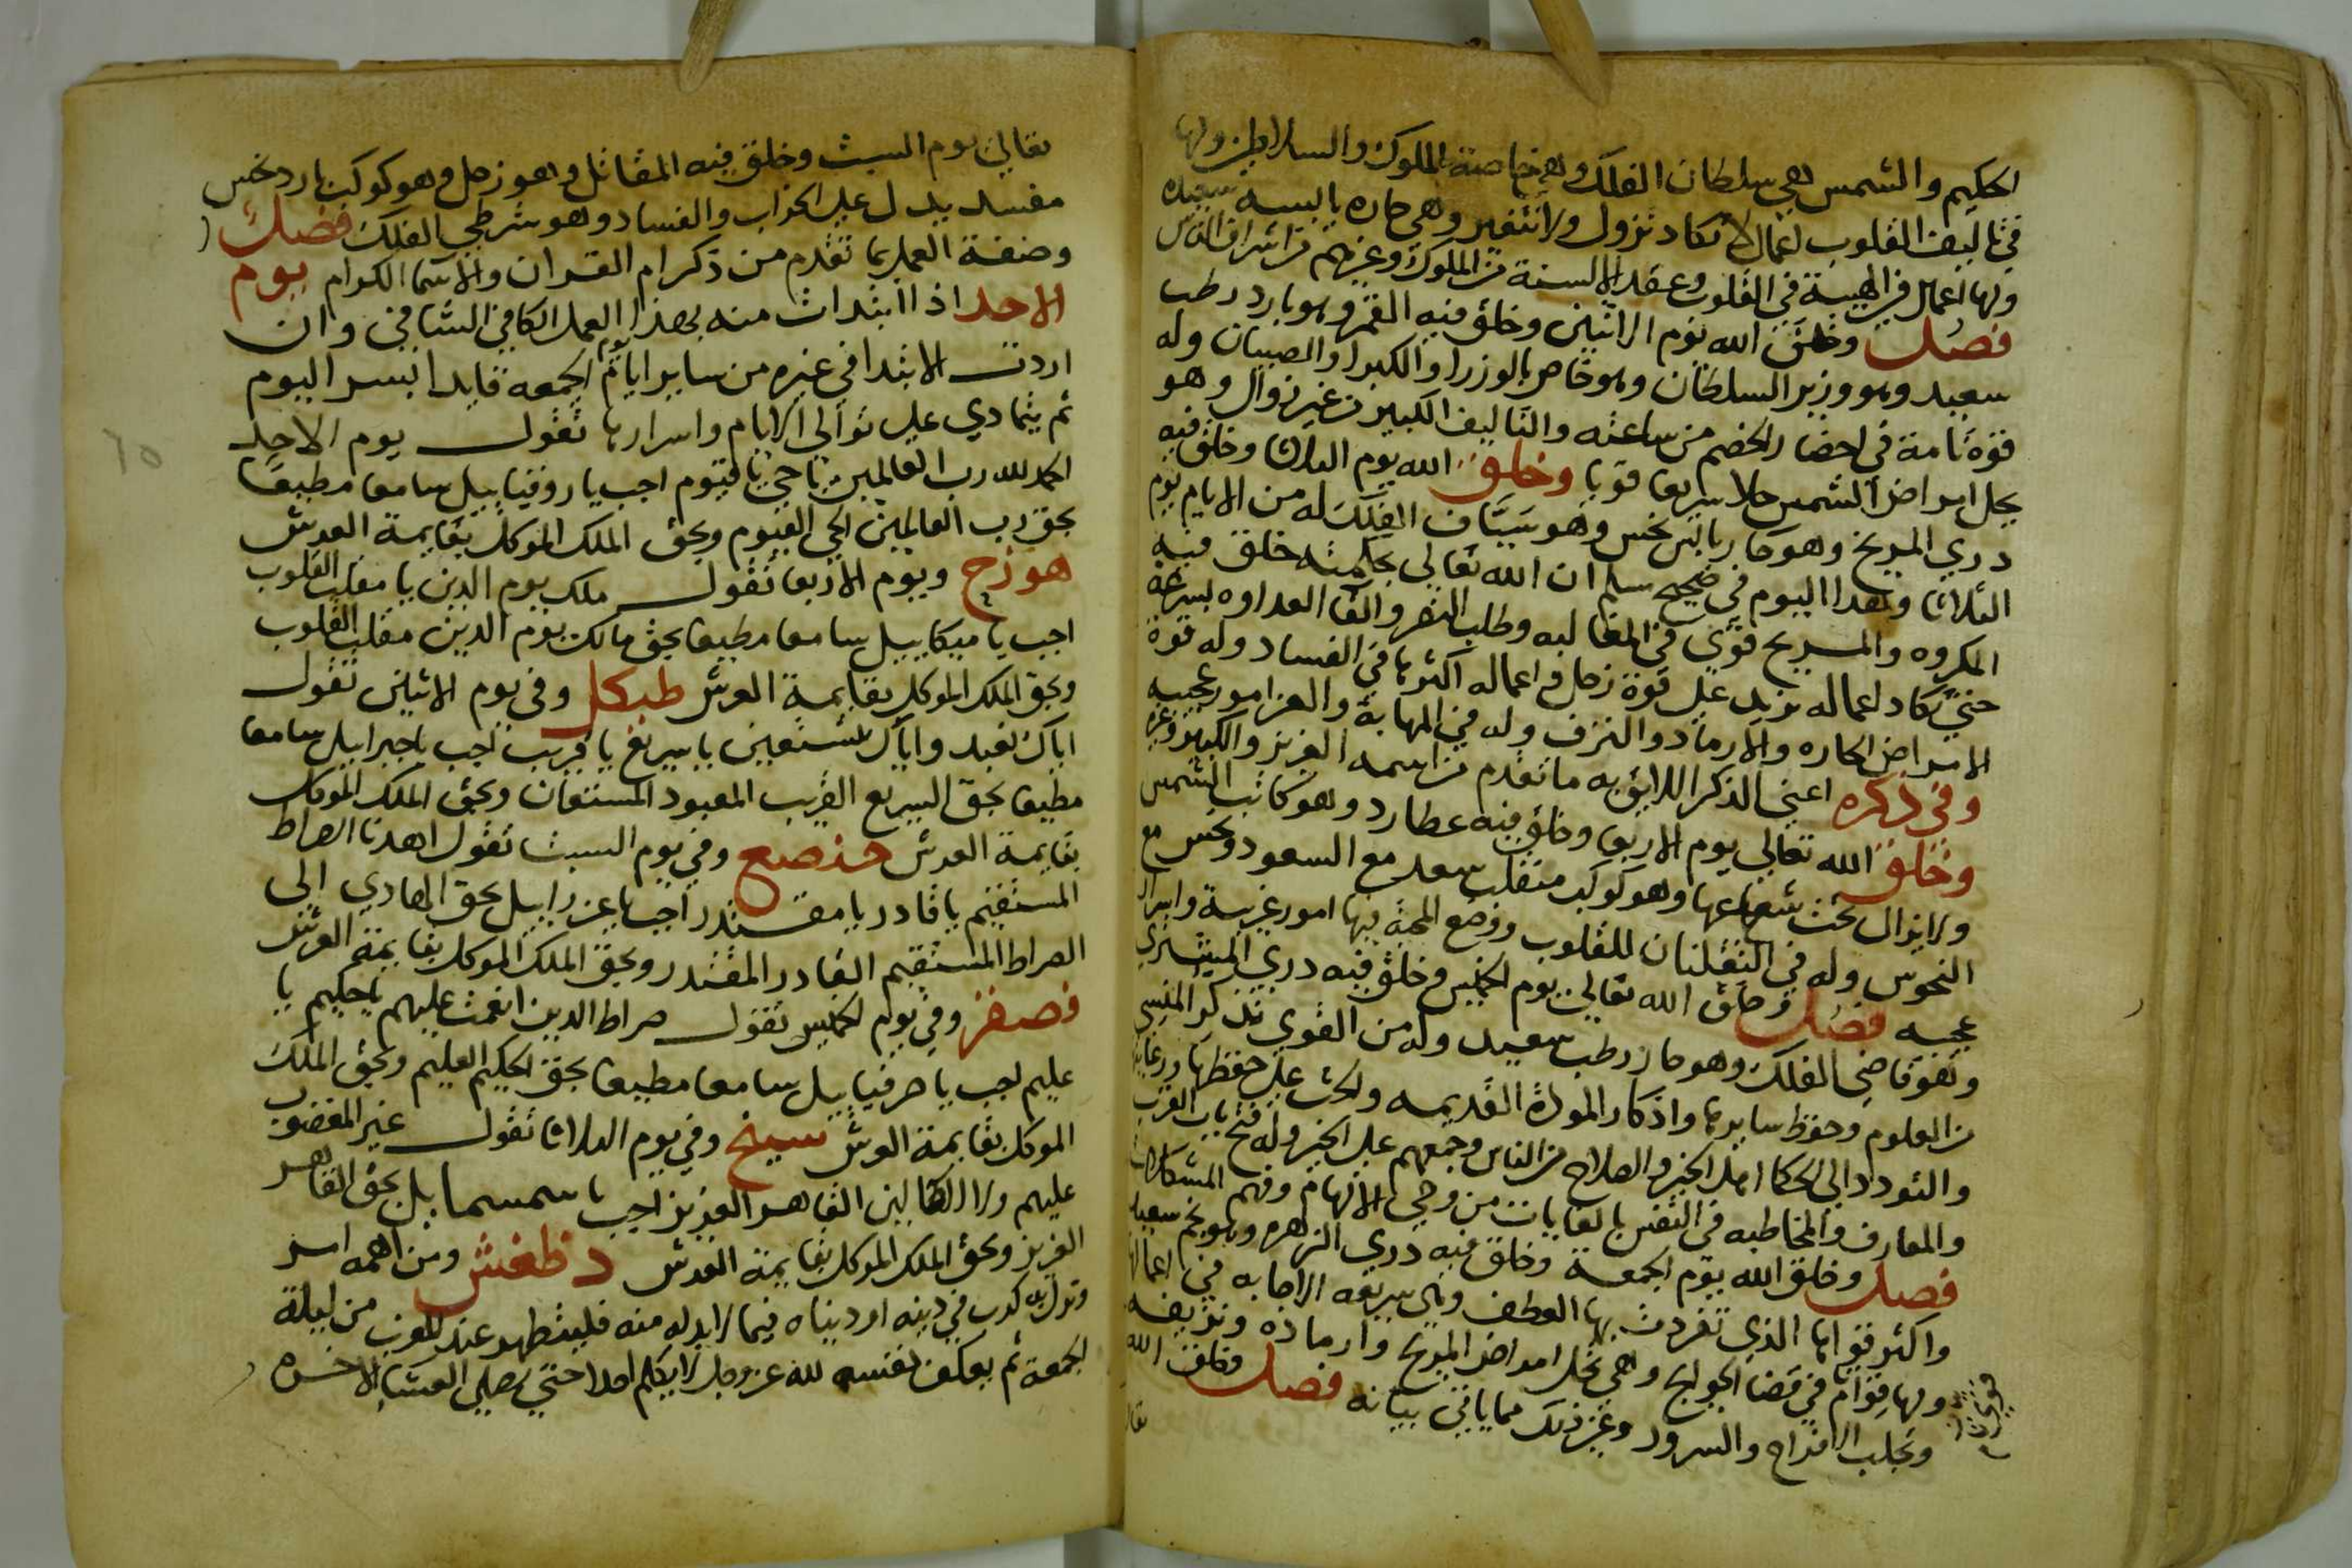 الحكيم والشمس هي سلطان الفلك وهي خاصة الملوك والسلاطين ولها
في تاليف القلوب اعمال لا تكاد تزول ولا تتغير وهي حاره يابسه سعيده
ولها اعمال في الهيبة في القلوب وعقد الالسنة من الملوك وغيرهم من اشراف الناس
فصل وخلق الله يوم الاثنين وخلق فيه القمر وهو بارد رطب
سعيد وهو وزير السلطان وهو خاص بالوزرا والكبرا والصبيان وله
قوة تامة في احضار الخصم من ساعته والتاليف الكبير من غير زوال وهو
يحل امراض الشمس حلا سريعا قويا وخلق الله يوم الثلاثا وخلق فيه
دري المريخ وهو حار يابس نحس وهو سياف الفلك له من الايام يوم
الثلاثا وهذا اليوم في صحيح مسلم ان الله تعالى بحكمته خلق فيه
المكروه والمريخ قوى في المغالبه وطلب الشر والقا العداوه بسرعة
حتى تكاد اعماله تزيد على قوة زحل واعماله اكثرها في الفساد وله قوة
الامراض الحاره والارماد والنزف وله في المهابة والعز امور عجيبه
وفي ذكره اعني الذكر اللايق به ما تقدم من اسمه العزيز والكبير وغيره
وخلق الله تعالى يوم الاربعا وخلق فيه عطارد وهو كاتب الشمس
ولايزال تحت شعاعها وهو كوكب منقلب سعد مع السعود ونحس مع
النحوس وله في التقلبات للقلوب ووضع المحبة بها امور غريبة واسرار
عجيبه فصل وخلق الله تعالى يوم الخميس وخلق فيه دري المشتري
وهو قاضي الفلك وهو حار رطب سعيد وله من القوي تذكر المنسي
من العلوم وحفظ سايرها واذكار المودة القديمه والحث على حفظها ورعاية
والتودد الى الحكما اهل الخير والصلاح من الناس وجمعهم على الخير وله فتح باب القرب
والمعارف والمخاطبه في النفس بالغايات من وحي الالهام وفهم المشكلات
فصل وخلق الله يوم الجمعة وخلق فيه دري الزهره وهو نجم سعيد
واكثر قواها الذي تفردت بها العطف وهي سريعه الاجابه في اعمالها
ولها قوام في قضا الحوايج وهي تحل امراض المريخ وارماده ونزيفه
وتجلب الافراح والسرور وغير ذلك مما ياتي بيانه فصل وخلق الله
تعا
تعالى يوم السبت وخلق فيه المقاتل وهو زحل وهو كوكب بارد نحس
مفسد يدل على الخراب والفساد وهو شرطي الفلك فصل
وصفة العمل بما تقدم من ذكر ام القران والاسما الكرام يوم
الاحد اذا ابتدات منه بهذا العمل الكافي الشافي وان
اردت الابتدا في غيره من ساير ايام يوم الجمعه فابدا بسر اليوم
ثم يتمادي على توالي الايام واسرارها تقول يوم الاحد
الحمد لله رب العالمين يا حي يا قيوم اجب يا روقياييل سامعا مطيعا
بحق رب العالمين الحي القيوم وبحق الملك الموكل بقايمة العرش
هوزح ويوم الاربعا تقول ملك يوم الدين يا مقلب القلوب
اجب يا ميكاييل سامعا مطيعا بحق مالك يوم الدين مقلب القلوب
وبحق الملك الموكل بقايمة العرش طيكل وفي يوم الاثنين تقول
اياك نعبد واياك نستعين يا سريع يا قريب اجب يا جبراييل سامعا
مطيعا بحق السريع القريب المعبود المستعان وبحق الملك الموكل
بقايمة العرش منصع وفي يوم السبت تقول اهدنا الصراط
المستقيم يا قادر يا مقتدر اجب يا عزراييل بحق الهادي الى
الصراط المستقيم القادر المقتدر وبحق الملك الموكل بقايمة العرش
فصقر وفي يوم الخميس تقول صراط الدين انعمت عليهم يا حكيم يا
عليم اجب يا صرفياييل سامعا مطيعا بحق الحكيم العليم وبحق الملك
الموكل بقايمة العرش ستثخ وفي يوم الثلاثا تقول غير المغضوب
عليهم ولا الضالين القاهر العزيز اجب يا سمسماييل بحق القاهر
العزيز وبحق الملك الموكل بقايمة العرش ذظغش ومن اهمه امر
ونزل به كرب في دينه او دنياه فيما لابد له منه فليتطهر عند الغرب من ليلة
الجمعة ثم يعكف نفسه لله عز وجل لا يكلم احدا حتى يصلي العشا الاخره